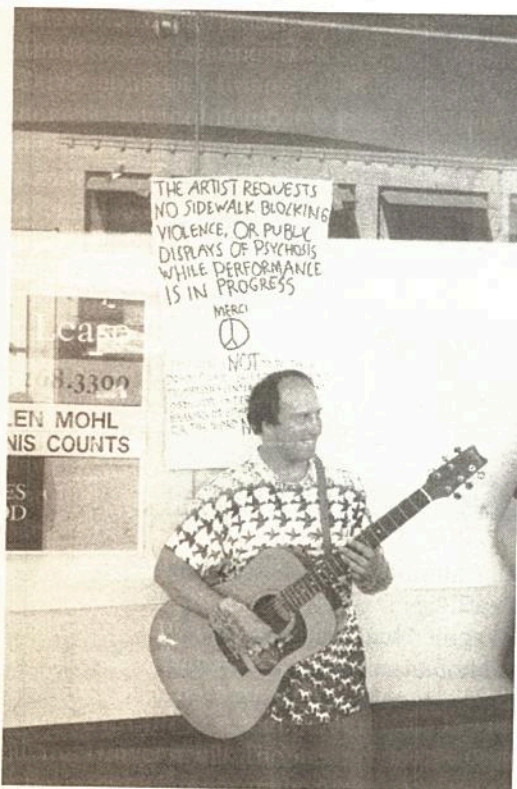 THE ARTIST REQUESTS
NO SIDEWALK BLOCKING
VIOLENCE, OR PUBLIC
DISPLAYS OF PSYCHOSIS
WHILE PERFORMANCE
IS IN PROGRESS
MERCI
NOT
Lease
8.3300
LEN MOHL
NIS COUNTS
ES
OD